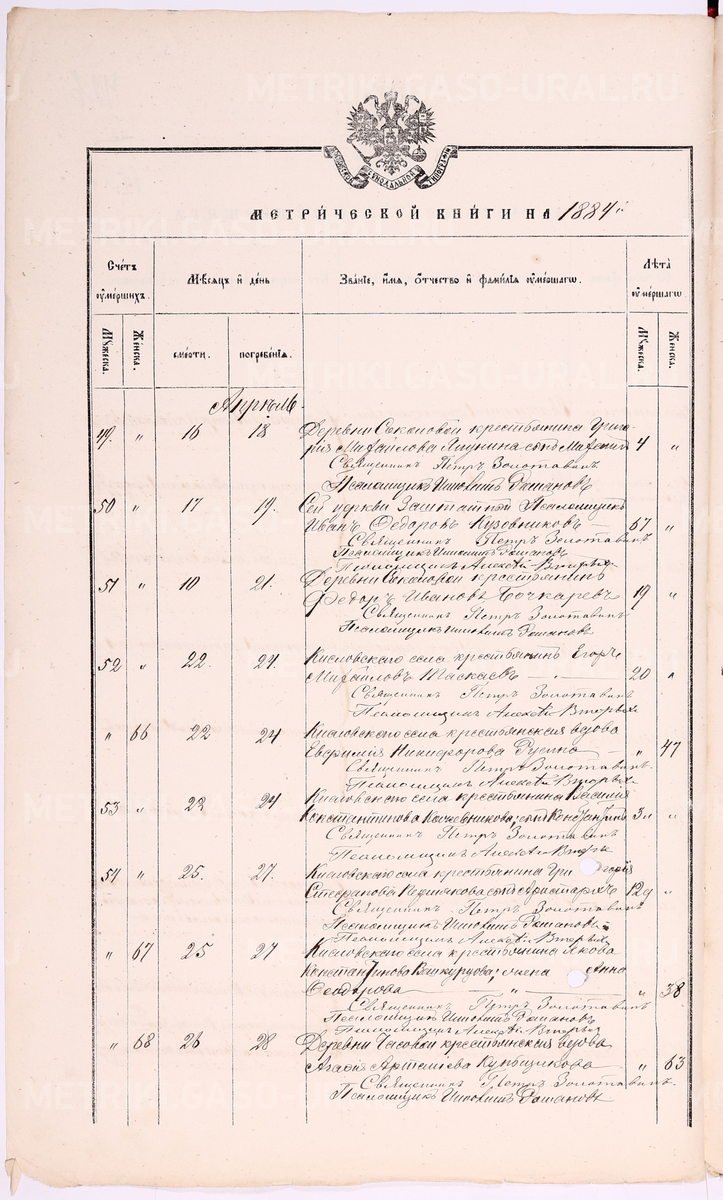 METRIKI.GASO-URAL.RU
МЕТРИ́ЧЕСКОЙ КНИ́ГИ НА 1884 г.
Сче́тъ ѹме́ршихъ.
Мѣсяцъ и день
Зва́нїе, и́мя, о́тчество и фами́лїя ѹме́ршаго.
Лѣта̀ ѹме́ршаго
Мꙋжеска. Же́нска.
сме́рти. погребе́нїя.
Мꙋжеска. Же́нска.
Апрѣль.
49. " 16 18 Деревни Соколовой крестьянина Григо-
рія Михайлова сынъ 4 "
Священникъ Петръ Золотавинъ
Псаломщикъ Ипполитъ
50 " 17 19. Сей церкви Заштатный Псаломщикъ
Иванъ Ѳедоровъ Кузовниковъ — 67 "
Священникъ Петръ Золотавинъ
Псаломщикъ Ипполитъ
Псаломщикъ Алексѣй Вторыхъ
51 " 19 21. Деревни Соколовой крестьянинъ
Ѳедоръ Ивановъ Бочкаревъ 19 "
Священникъ Петръ Золотавинъ
Псаломщикъ Ипполитъ
52 " 22. 24. Кисловскаго села крестьянинъ Егоръ
Михайловъ Таскаевъ — " — 20 "
Священникъ Петръ Золотавинъ
Псаломщикъ Алексѣй Вторыхъ
" 66 22 24 Кисловскаго села крестьянская вдова
Евфимія Никифорова — " 47
Священникъ Петръ Золотавинъ.
Псаломщикъ Алексѣй Вторыхъ
53 " 22 24 Кисловскаго села крестьянина Василія
Константинова сынъ "
Священникъ Петръ Золотавинъ
Псаломщикъ Алексѣй Вторыхъ
54 " 25. 27. Кисловскаго села крестьянина Григорія
Стефанова сынъ Аристархъ "
Священникъ Петръ Золотавинъ
Псаломщикъ Ипполитъ
Псаломщикъ Алексѣй Вторыхъ
" 67 25 27 Кисловскаго села крестьянина Якова
Константинова жена Анна
Ѳеодорова — " — " 38
Священникъ Петръ Золотавинъ
Псаломщикъ Ипполитъ
Псаломщикъ Алексѣй Вторыхъ
" 68 26 28 Деревни Часовой крестьянская вдова
Агафія Артеміева — " 63
Священникъ Петръ Золотавинъ.
Псаломщикъ Ипполитъ